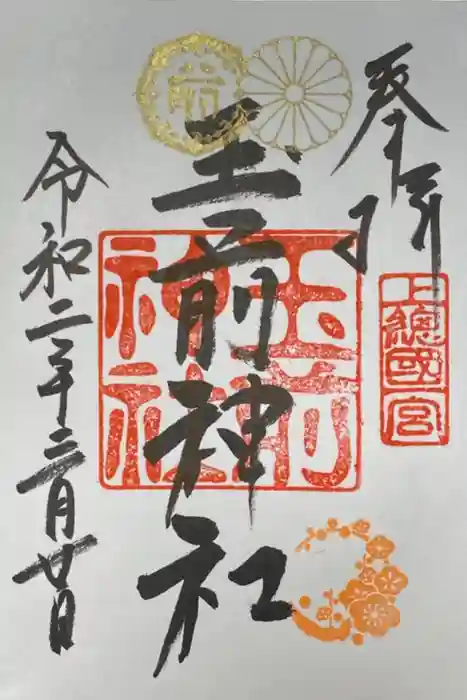 奉拝
上總國一宮
玉前神社
玉前神社
前
令和二年三月廿日